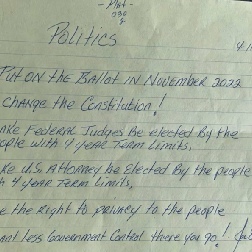 Plat -
Politics
4/1
Put on the Ballot in November 2022
change the Constitution!
ake Federal Judges be elected by the
ople with 4 year Term Limits.
ke U.S. Attorney be Elected By the people
h 4 year Term Limits.
e the Right to privacy to the people
ant less Government Control there you go!